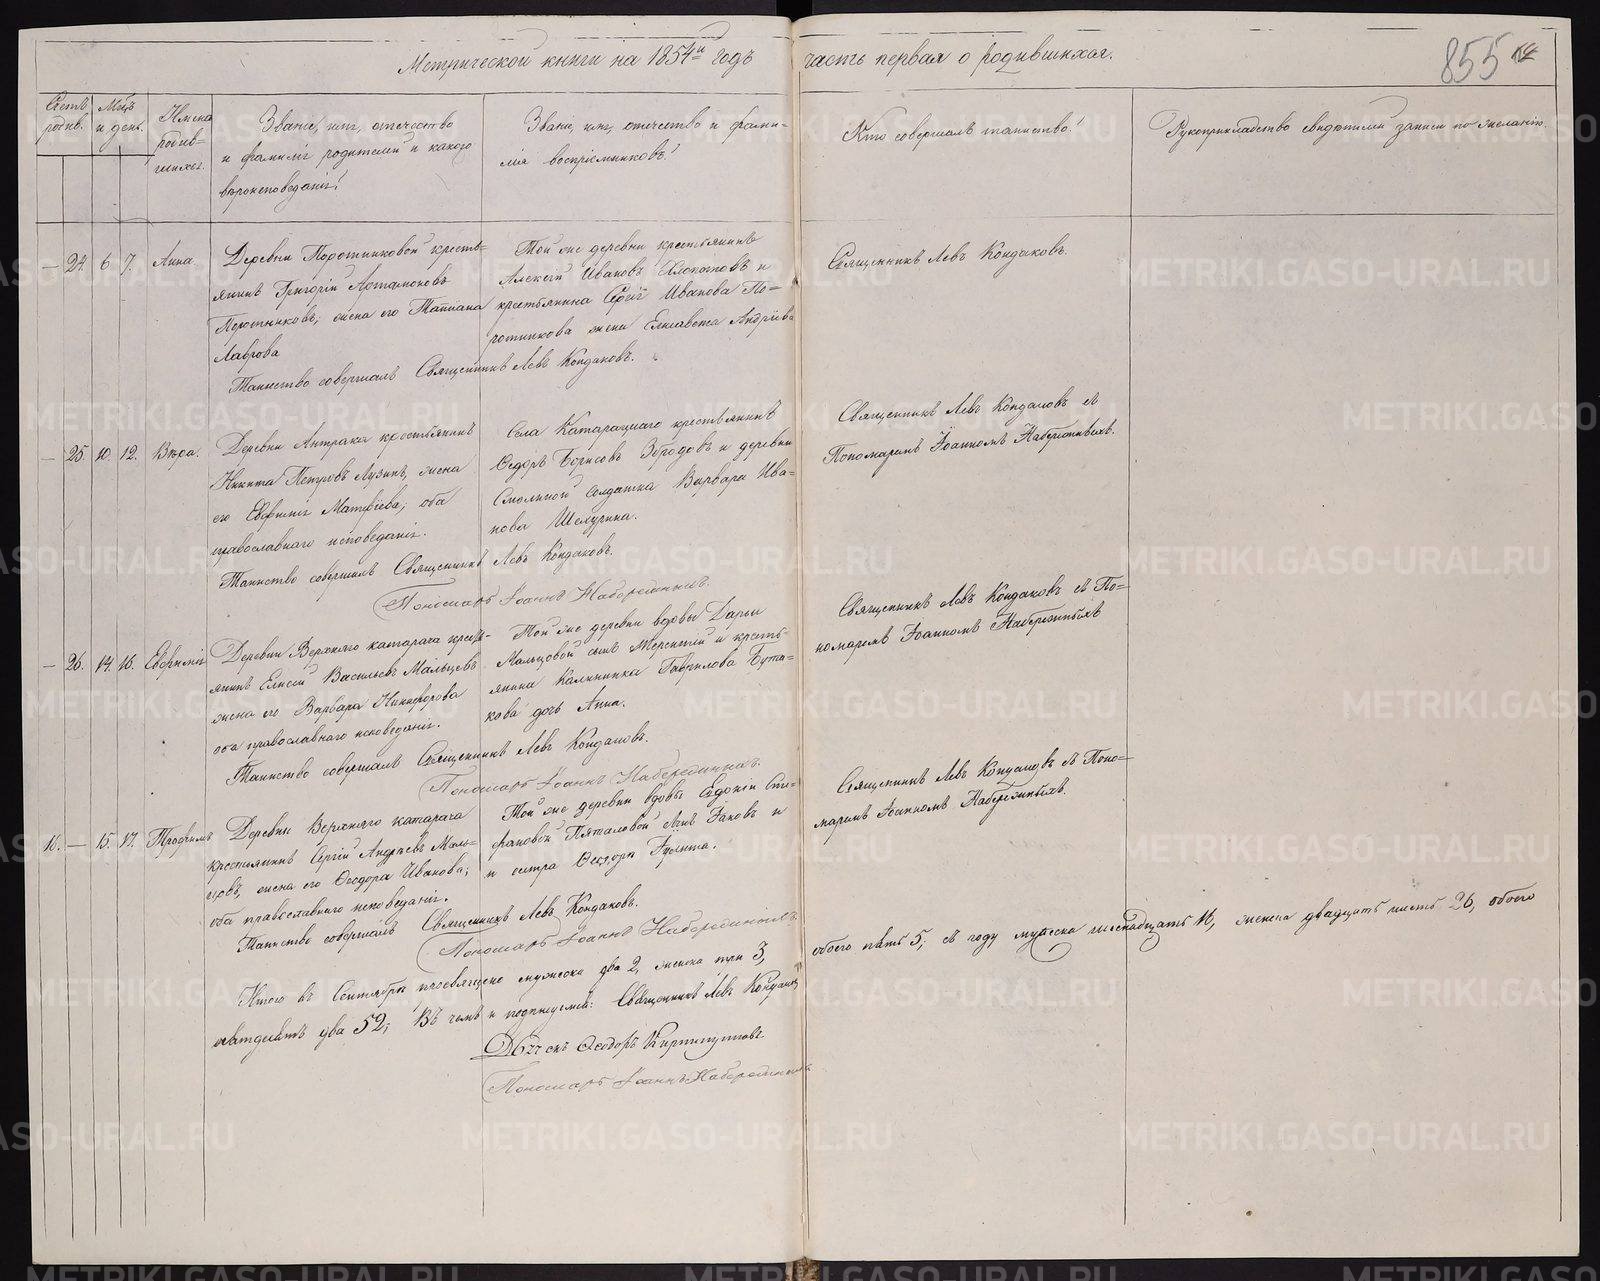 Метрической книги на 1854й годъ часть первая о родившихся.
855
Счетъ родив.
Мѣцъ и день.
Имена родив-
шихся.
Званіе, имя, отечество
и фамилія родителей и какого
вѣроисповеданія.
Званіе, имя, отечество и фами-
лія воспріемниковъ.
Кто совершалъ таинство.
Рукоприкладство свидетелей записи по желанію.
— 24. 6. 7. Анна.
Деревни Поротниковой кресть-
янинъ Григорій Артамоновъ
Поротниковъ, жена его Татиана
Лаврова
Той же деревни крестьянинъ
Алексей Ивановъ и
крестьянина Сергія Иванова По-
ротникова жена Елисавета Андріева
Таинство совершалъ Священникъ Левъ Кондаковъ.
Священникъ Левъ Кондаковъ.
— 25. 10. 12. Вѣра.
Деревни Антрака крестьянинъ
Никита Петровъ Лузинъ, жена
его Евфимія Матфіева, оба
православнаго исповеданія.
Села Катарацкаго крестьянинъ
Ѳедоръ Борисовъ Збродовъ и деревни
Смолиной солдатка Варвара Ива-
нова Шемурина.
Таинство совершилъ Священникъ Левъ Кондаковъ.
Пономарь Іоаннъ Набережныхъ.
Священникъ Левъ Кондаковъ съ
Пономаремъ Іоанномъ Набережныхъ.
— 26. 14. 16. Евфимія
Деревни Верхняго катарача кресть-
янинъ Елисей Васильевъ Мальцевъ
жена его Варвара Никифорова
оба православнаго исповеданія.
Той же деревни вдовы Дарьи
Мальцовой сынъ Терентій и кресть-
янина Калинника Гаврилова Бута-
кова дочь Анна.
Таинство совершалъ Священникъ Левъ Кондаковъ.
Пономарь Іоаннъ Набережныхъ.
Священникъ Левъ Кондаковъ съ По-
номаремъ Іоанномъ Набережныхъ
16. — 15. 17. Трофимъ
Деревни Верхняго катарача
крестьянинъ Сергій Андреевъ Маль-
цовъ, жена его Ѳеодора Иванова,
оба православнаго исповеданія.
Той же деревни вдовы Евдокіи Сте-
фановой Пяталовой сынъ Іаковъ и
и сестра Ѳеодора
Таинство совершалъ Священникъ Левъ Кондаковъ.
Пономарь Іоаннъ Набережныхъ
Священникъ Левъ Кондаковъ съ Поно-
маремъ Іоанномъ Набережныхъ.
Итого въ Сентябрѣ просвящено мужеска два 2, женска три 3, обоего пять 5; въ году мужеска шеснадцать 16, женска двадцать шесть 26, обоего
два 52; Въ чемъ и подписуемся: Священникъ Левъ Кондаковъ
Дьячекъ Ѳеодоръ
Пономарь Іоаннъ Набережныхъ
METRIKI.GASO-URAL.RU